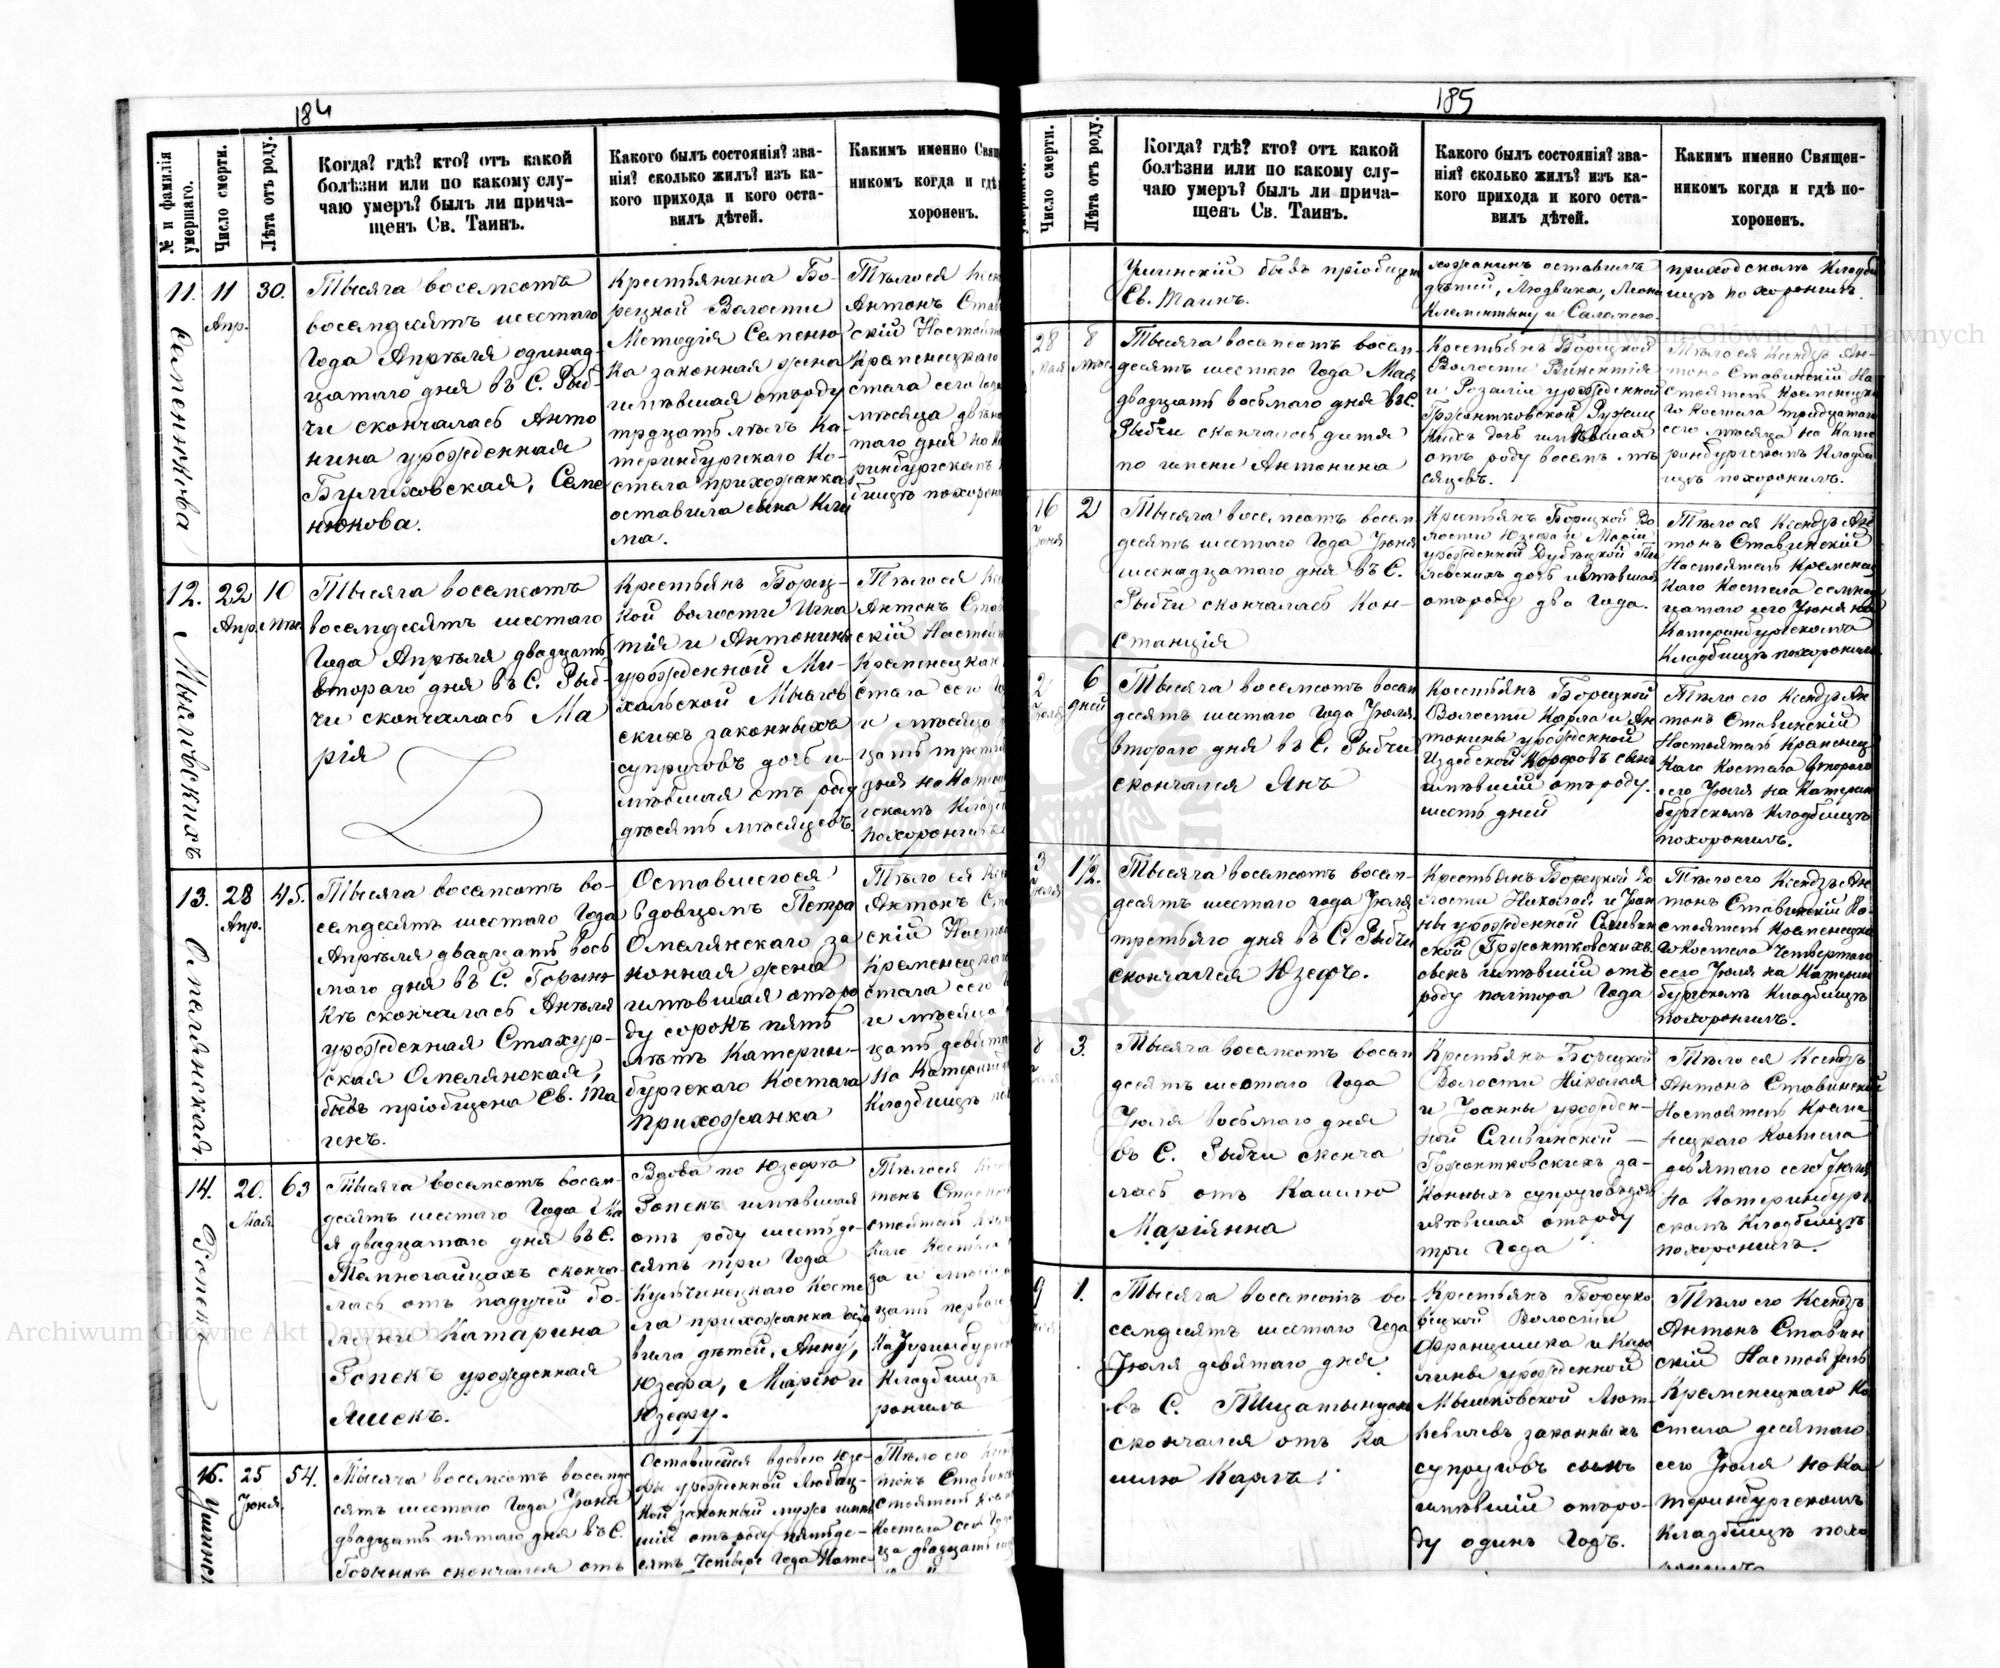 184
№ и фамилія умершаго.
Число смерти.
Лѣта отъ роду.
Когда? гдѣ? кто? отъ какой
болѣзни или по какому слу-
чаю умеръ? былъ ли прича-
щенъ Св. Таинъ.
Какого былъ состоянія? зва-
нія? сколько жилъ? изъ ка-
кого прихода и кого оста-
вилъ дѣтей.
Какимъ именно Свящ
никомъ когда и гдѣ
хороненъ.
11.
Сапенюкова
11
Апр.
30.
Тысяча восемсотъ
восемдесятъ шестаго
Года Апрѣля одинад-
цатаго дня въ С. Рыд-
чи скончалась Анто
нина урожденная
Сапе
нюкова.
Крестьянина Бо-
рецкой Волости
Методія Сапеню
ка законная жена
имѣвшая отъ роду
тридцать лѣтъ Ка-
теринбургскаго Ко-
стела прихожанка
оставила сына Кли
ма.
Тѣло ея Ксен
Антонъ Став
скій Настоят
Кременецкаго
стела сего Года
мѣсяца двѣна
таго дня на Ка
ринбургскомъ К
бищѣ похорони
12.
Мысльвскихъ
22
Апр.
10
Мѣс.
Тысяча восемсотъ
восемдесятъ шестаго
Года Апрѣля двадцать
втораго дня въ С. Рыд-
чи скончалась Ма
рія
Крестьянъ Борец-
кой волости Игна
тія и Антонины
урожденной Ми-
хальской
скихъ законныхъ
супруговъ дочь и-
мѣвшая отъ роду
десять мѣсяцевъ
Тѣло ея Кс
Антонъ Став
скій Настоят
Кременецкаг
стела сего Го
и мѣсяца
цать третьяг
дня на Катер
гскомъ Кладб
похоронилъ
13.
Омелянская
28
Апр.
45.
Тысяча восемсотъ во-
семдесятъ шестаго Года
Апрѣля двадцать вось
маго дня въ С. Горын-
кѣ скончалась Анѣля
урожденная Стахур-
ская Омелянская,
бывъ пріобщена Св. Та
инъ.
Оставшегося
вдовцомъ Петра
Омелянскаго за
конная жена
имѣвшая отъ ро
ду сорокъ пять
лѣтъ Катерин-
бургскаго Костела
прихожанка
Тѣло ея Ксе
Антонъ Ст
скій Насто
Кременецкаго
стела сего
и мѣсяца
цать девятаг
на Катеринб
Кладбищѣ по
14.
Ропекъ
20.
Мая
63
Тысяча восемсотъ восем-
десятъ шестаго Года Ма
я двадцатаго дня въ С.
Тамногайцахъ сконча-
лась отъ падучей бо-
лезни Катарина
Ропекъ урожденная
Яшекъ.
Вдова по Юзефѣ
Ропекъ имѣвшая
отъ роду шестьде-
сятъ три Года
Костe
ла прихожанка оста
вила дѣтей, Анну,
Юзефа, Марію и
Юзефу.
Тѣло ея Ксе
тонъ Стави
стоятель Кре
каго Костела
да и мѣсяца
цать перваго
Кладбищѣ
ронилъ
15.
25
Іюня
54.
Тысяча восемсотъ восемде
сятъ шестаго Года Іюня
двадцать пятаго дня въ С.
Горынкѣ скончался отъ
Оставшейся вдовою Юзе-
фы урожденной
кой законный мужъ имѣв
шій отъ роду пятьде-
сятъ четыре Года Кате-
Тѣло его Ксен
тонъ Ставинс
стоятель Крем
Костела сего Года
ца двадцать
185
Число смерти.
Лѣта отъ роду.
Когда? гдѣ? кто? отъ какой
болѣзни или по какому слу-
чаю умеръ? былъ ли прича-
щенъ Св. Таинъ.
Какого былъ состоянія? зва-
нія? сколько жилъ? изъ ка-
кого прихода и кого оста-
вилъ дѣтей.
Какимъ именно Священ-
никомъ когда и гдѣ по-
хороненъ.
бывъ пріобщенъ
Св. Таинъ.
хожанинъ оставилъ
дѣтей, Людвика, Леона
Клементыну и Саломею.
приходскомъ Кладби
щѣ похоронилъ.
28
Мая
8
Мѣс.
Тысяча восемсотъ восем-
десятъ шестаго Года Мая
двадцать восьмаго дня въ С.
Рыдчи скончалась дитя
по имени Антонина
Крестьянъ Борецкой
Волости Викентія
и Розаліи урожденной
Гржонтковской
дочь имѣвшая
отъ роду восемъ мѣ
сяцевъ.
Тѣло ея Ксендзъ Ан-
тонъ Ставинскій На
стоятель Кременецка
го Костела тридцатаго
сего мѣсяца на Кате
ринбургскомъ Кладби
щѣ похоронилъ.
16
Іюня
2
Тысяча восемсотъ восем
десятъ шестаго Года Іюня
шеснадцатаго дня въ С.
Рыдчи скончалась Кон-
станція
Крестьянъ Борецкой Во
лости Юзефа и Маріи
урожденной
дочь имѣвшая
отъ роду два Года.
Тѣло ея Ксендзъ Ан
тонъ Ставинскій
Настоятель Кременец
каго Костела семнад
цатаго сего Іюня на
Катеринбургскомъ
Кладбищѣ похоронилъ
2
Іюля
6
дней
Тысяча восемсотъ восем
десятъ шестаго Года Іюля
втораго дня въ С. Рыдчи
скончался Янъ
Крестьянъ Борецкой
Волости Карла и Ан
тонины урожденной
Издебской сынъ
имѣвшій отъ роду
шесть дней
Тѣло его Ксендзъ Ан
тонъ Ставинскій
Настоятель Кременец
каго Костела втораго
сего Іюля на Катерин
бургскомъ Кладбищѣ
похоронилъ.
3
Іюля
1½.
Тысяча восемсотъ восем-
десятъ шестаго года Іюля
третьяго дня въ С. Рыдчи
скончался Юзефъ.
Крестьянъ Борецкой Во
лости Николая и Іоан
ны урожденной Сливин
ской Гржонтковскихъ
сынъ имѣвшій отъ
роду полтора Года
Тѣло его Ксендзъ Ан
тонъ Ставинскій На-
стоятель Кременецка
го Костела четвертаго
сего Іюля на Катерин
бургскомъ Кладбищѣ
похоронилъ.
8
Іюля
3.
Тысяча восемсотъ восем
десятъ шестаго Года
Іюля восьмаго дня
въ С. Рыдчи сконча
лась отъ Кашлю
Маріянна
Крестьянъ Борецкой
Волости Николая
и Іоанны урожден-
ной Сливинской —
Гржонтковскихъ за-
конныхъ супруговъ дочь
имѣвшая отъ роду
три Года
Тѣло ея Ксендзъ
Антонъ Ставинскій
Настоятель Креме-
нецкаго Костела
девятаго сего Іюля
на Катеринбург
скомъ Кладбищѣ
похоронилъ.
9
Іюля
1.
Тысяча восемсотъ во-
семдесятъ шестаго Года
Іюля девятаго дня
въ С.
скончался отъ Ка
шлю Карлъ.
Крестьянъ Борецко
рецкой Волости
Францишка и Каро
лины урожденной
Мышковской Лют-
кевичевъ законныхъ
супруговъ сынъ
имѣвшій отъ ро-
ду одинъ Годъ.
Тѣло его Ксендзъ
Антонъ Ставин
скій Настоятель
Кременецкаго Ко
стела десятаго
сего Іюля на Ка
теринбургскомъ
Кладбищѣ похо
ронилъ
Archiwum Główne Akt Dawnych
Archiwum Główne Akt Dawnych